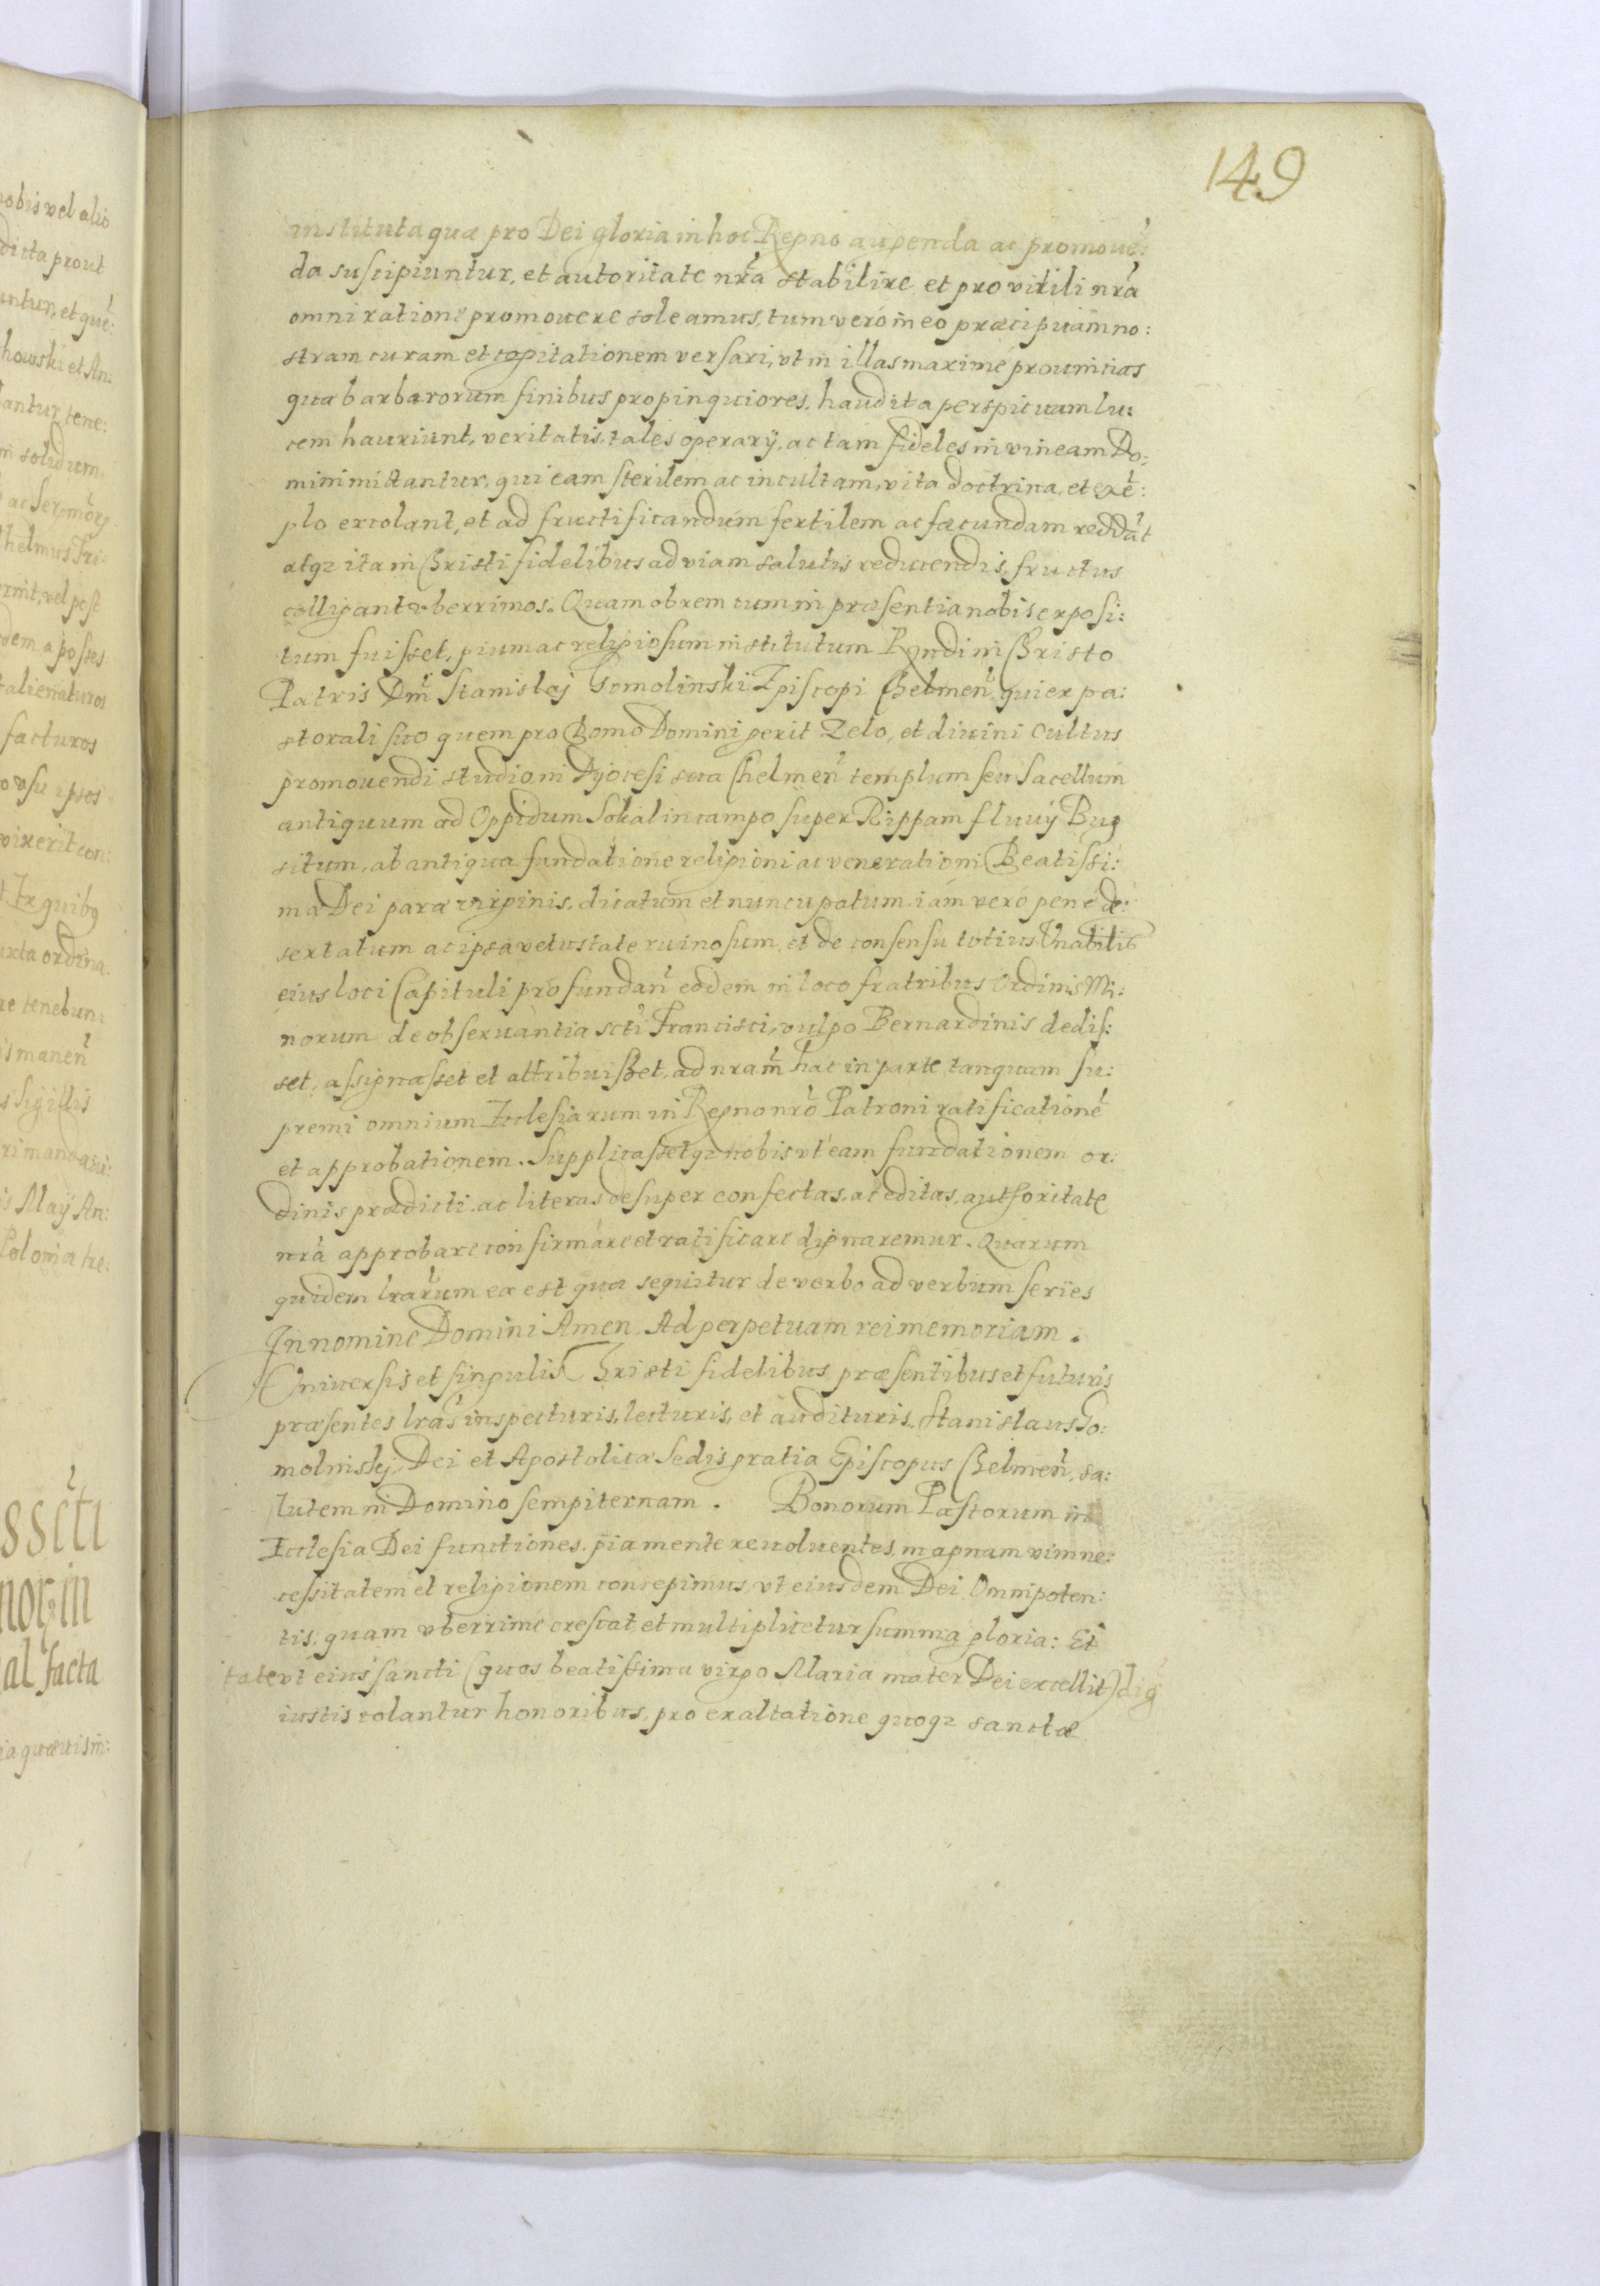 149
instituta quæ pro Dei gloria in hoc Regno augenda ac promoue:
da suscipiuntur, et autoritate nrã stabilire et pro virili nrã
omni ratione promouere soleamus, tum vero in eo præcipuam no:
stram curam et cogitationem versari, vt in illas maximè prouincias
quæ barbarorum finibus propinquiores, haud ita perspicuam lu:
cem hauriunt, veritatis, tales operarÿ, ac tam fideles in vineam Do:
mini mittantur, qui eam sterilem ac incultam, vita doctrina, et exẽ:
plo excolant, et ad fructificandum fertilem ac fæcundam reddãt
atqz ita in Christi fidelibus ad viam salutis reducendis, fructus
colligant vberrimos. Quamobrem cum in præsentia nobis exposi:
tum fuisset, pium ac religiosum institutum Rndi in Christo
Patris Dni Stanislaj Gomolinski Episcopi Chelmeñ. qui ex pa:
storali suo quem pro Domo Domini gerit Zelo, et diuini Cultus
promouendi studio in Dyocesi sua Chelmeñ templum seu Sacellum
antiquum ad Oppidum Sokal in campo super Rippam fluuÿ Bug
situm, ab antiqua fundatione religioni ac venerationi Beatissi:
mæ Dei paræ virginis, dicatum et nuncupatum, iam vero penè de:
sertatum ac ipsa vetustate ruinosum, et de consensu totius Vnabilis
eius loci Capituli pro fundan̄ eodem in loco fratribus Ordinis Mi:
norum de obseruantia scti Francisci, vulgo Bernardinis dedis:
set, assignasset et attribuisset, ad nram̃ hac in parte, tanquam su:
premi omnium Ecclesiarum in Regno nrõ Patroni ratificationẽ
et approbationem. Supplicassetqz nobis vt eam fundationem or:
dinis prædicti, ac literas desuper confectas, ac editas, authoritate
nrã approbare confirmare et ratificare dignaremur. Quarum
quidem lrarum ea est quæ sequitur de verbo ad verbum series
In nomine Domini Amen. Ad perpetuam rei memoriam.
Vniuersis et singulis Christi fidelibus, præsentibus et futuris
præsentes lras inspecturis, lecturis, et audituris, Stanislaus Go:
molinskj, Dei et Apostolicæ Sedis gratia Episcopus Chelmeñ, sa:
lutem in Domino sempiternam. Bonorum Pastorum in
Ecclesia Dei functiones, pia mente reuoluentes, magnam vim ne:
cessitatem et religionem concepimus, vt eiusdem Dei Omnipoten:
tis, quam vberrimè crescat, et multiplicetur summa gloria: Et
tate vt eius sancti (quos beatissima virgo Maria mater Dei excellit) dig
iustis colantur honoribus, pro exaltatione quoqz sanctæ